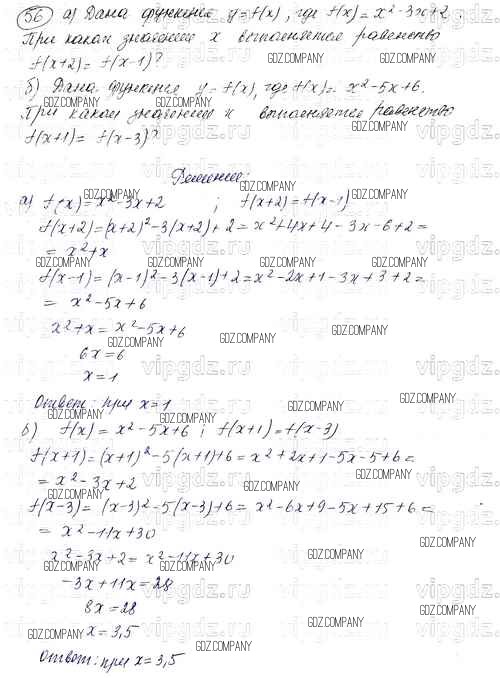 56 а) Дана функция y=f(x), где f(x)=x²-3x+2.
При каком значении x выполняется равенство
f(x+2)=f(x-1)?
б) Дана функция y=f(x), где f(x)=x²-5x+6.
При каком значении x выполняется равенство
f(x+1)=f(x-3)?
Решение:
а) f(x)=x²-3x+2 ; f(x+2)=f(x-1)
f(x+2)=(x+2)²-3(x+2)+2=x²+4x+4-3x-6+2=
= x²+x
f(x-1)=(x-1)²-3(x-1)+2=x²-2x+1-3x+3+2=
= x²-5x+6
x²+x=x²-5x+6
6x=6
x=1
Ответ: при x=1
б) f(x)=x²-5x+6 ; f(x+1)=f(x-3)
f(x+1)=(x+1)²-5(x+1)+6=x²+2x+1-5x-5+6=
= x²-3x+2
f(x-3)=(x-3)²-5(x-3)+6=x²-6x+9-5x+15+6=
= x²-11x+30
x²-3x+2=x²-11x+30
-3x+11x=28
8x=28
x=3,5
Ответ: при x=3,5
GDZ.COMPANY
vipgdz.ru